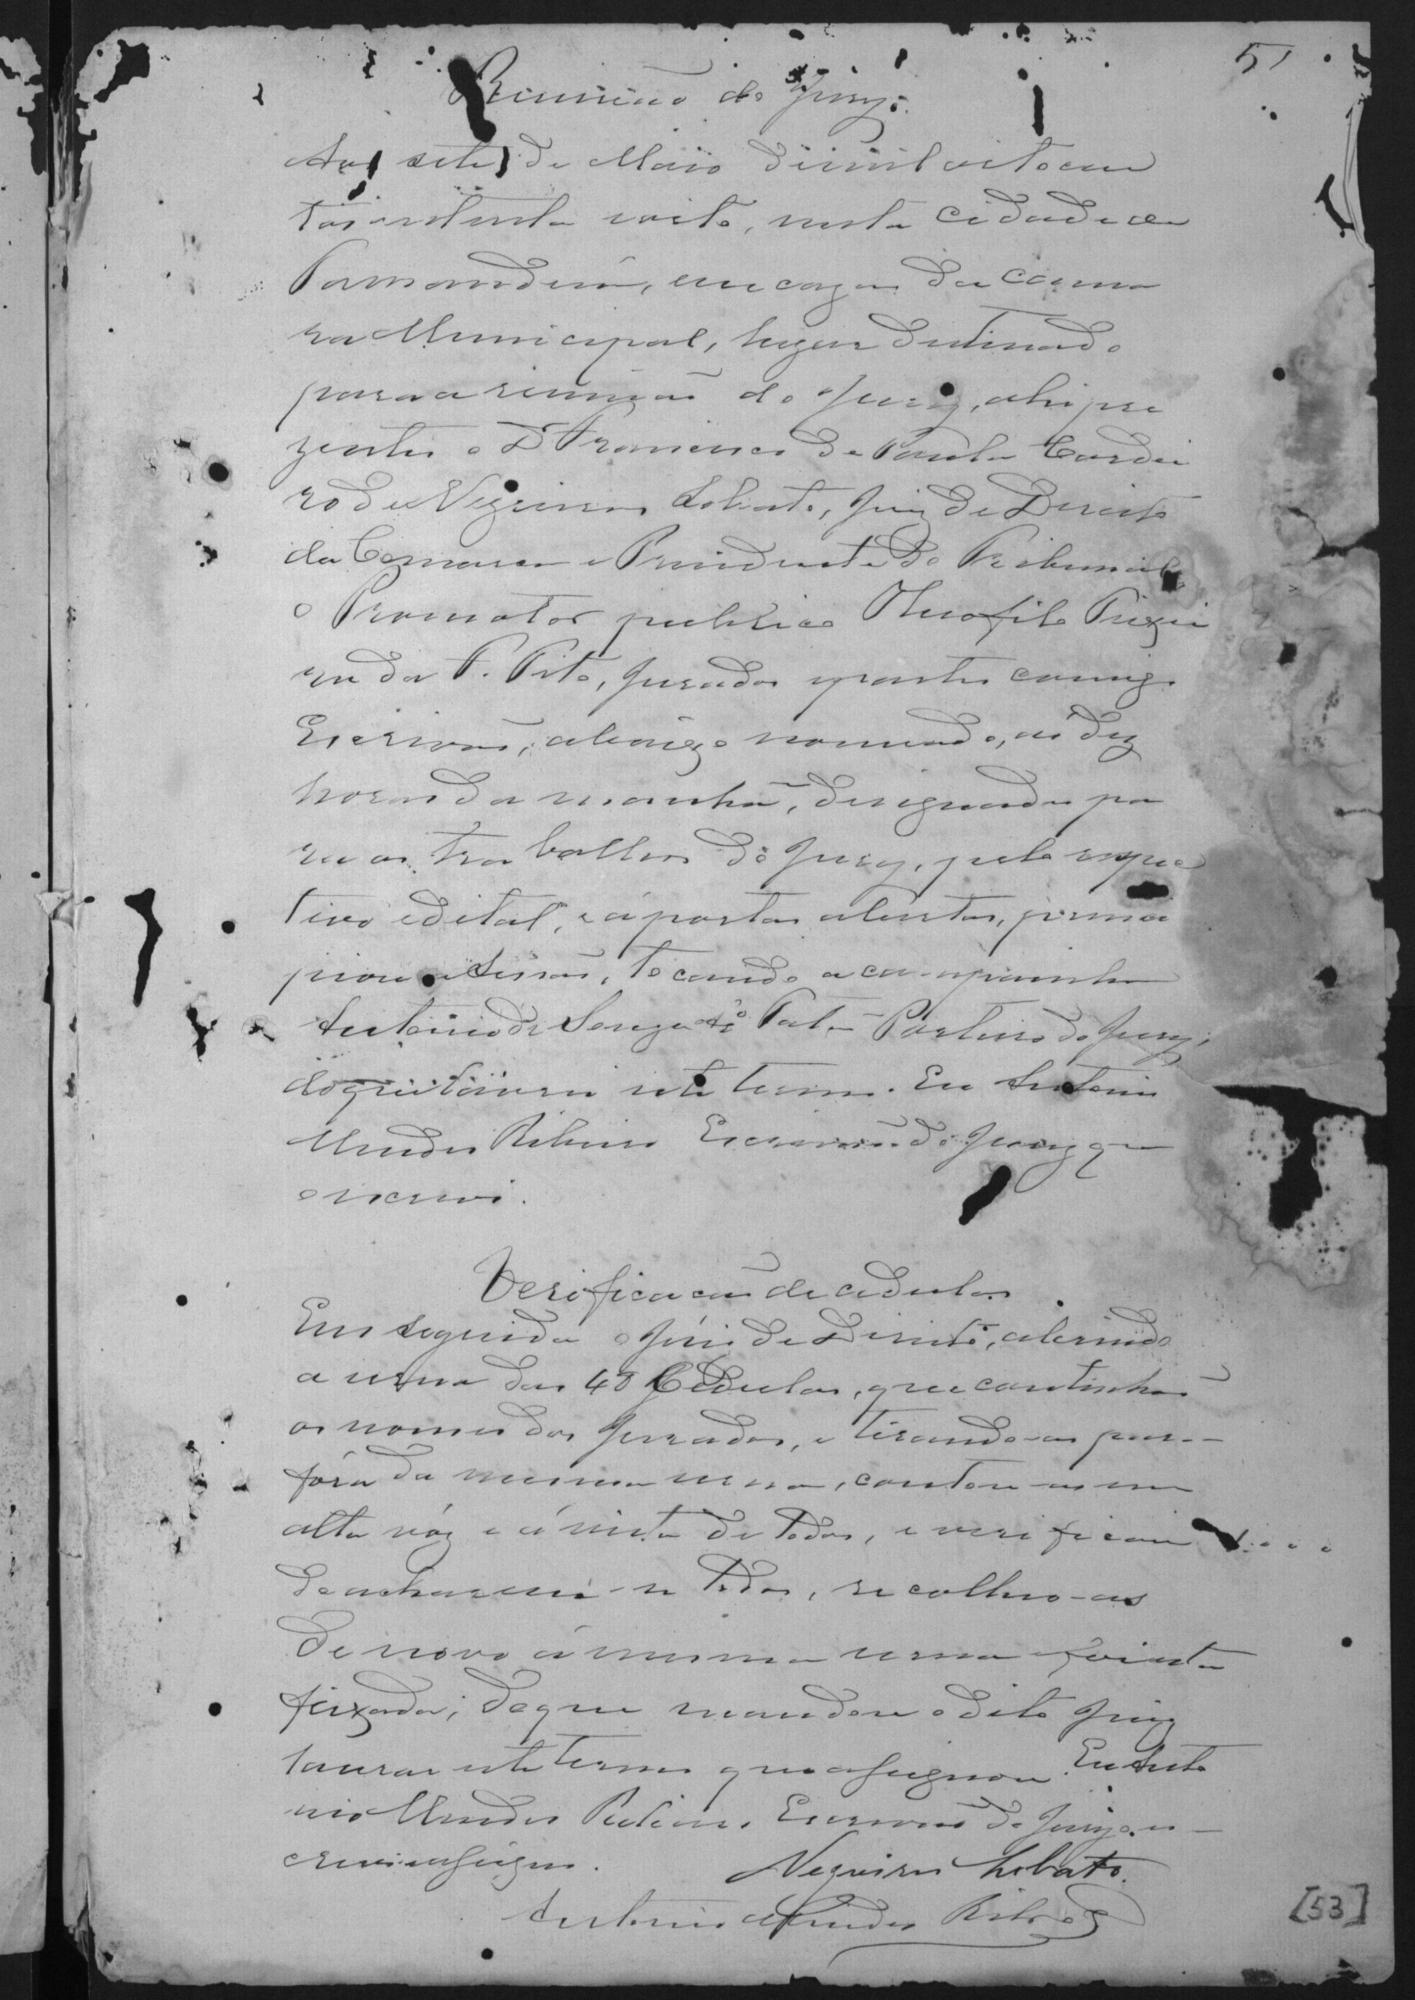 51
Reunião do Jury.
Aos sete de Maio de mil oitocen
tos e setenta e oito, nesta cidade de
em caza da Cama
ra Municipal, lugar destinado
para a reunião do Jury, ahi pre
zente o Dr Francisco de Paula Cordei
ro de Negreiros Lobato, Juiz de Direito
da Comarca e Presidente do Tribunal,
o Promotor publico Theofilo
ra da P. Pito, Jurados e partes comigo
Escrivão, abaixo nomeado, ás dez
horas da manhã, designadas pa
ra os trabalhos do Jury, pelo respec
tivo edital, e á portas abertas, princi
piou a Sessão, tocando a campainha
Antonio de Souza Porteiro do Jury;
do que lavrei este termo. Eu Antonio
Mendes Ribeiro Escrivão do Jury que
escrevi.
Verificação de cedulas
Em seguida o Juiz de Direito, abrindo
a urna das 48 Cedulas, que continhão
os nomes dos Jurados, e tirando-as para
fóra da mesma urna, contou-as em
alta vóz e á vista de todos, e verifican
do acharem-se todas, recolheo-as
de novo á mesma urna e foi esta
feixada; do que mandou o dito Juiz
lavrar este termo que assignou. Eu Anto
nio Mendes Ribeiro Escrivão do Jury es-
crevi e assigno.
Negreiros Lobato.
Antonio Mendes Ribeiro
[53]